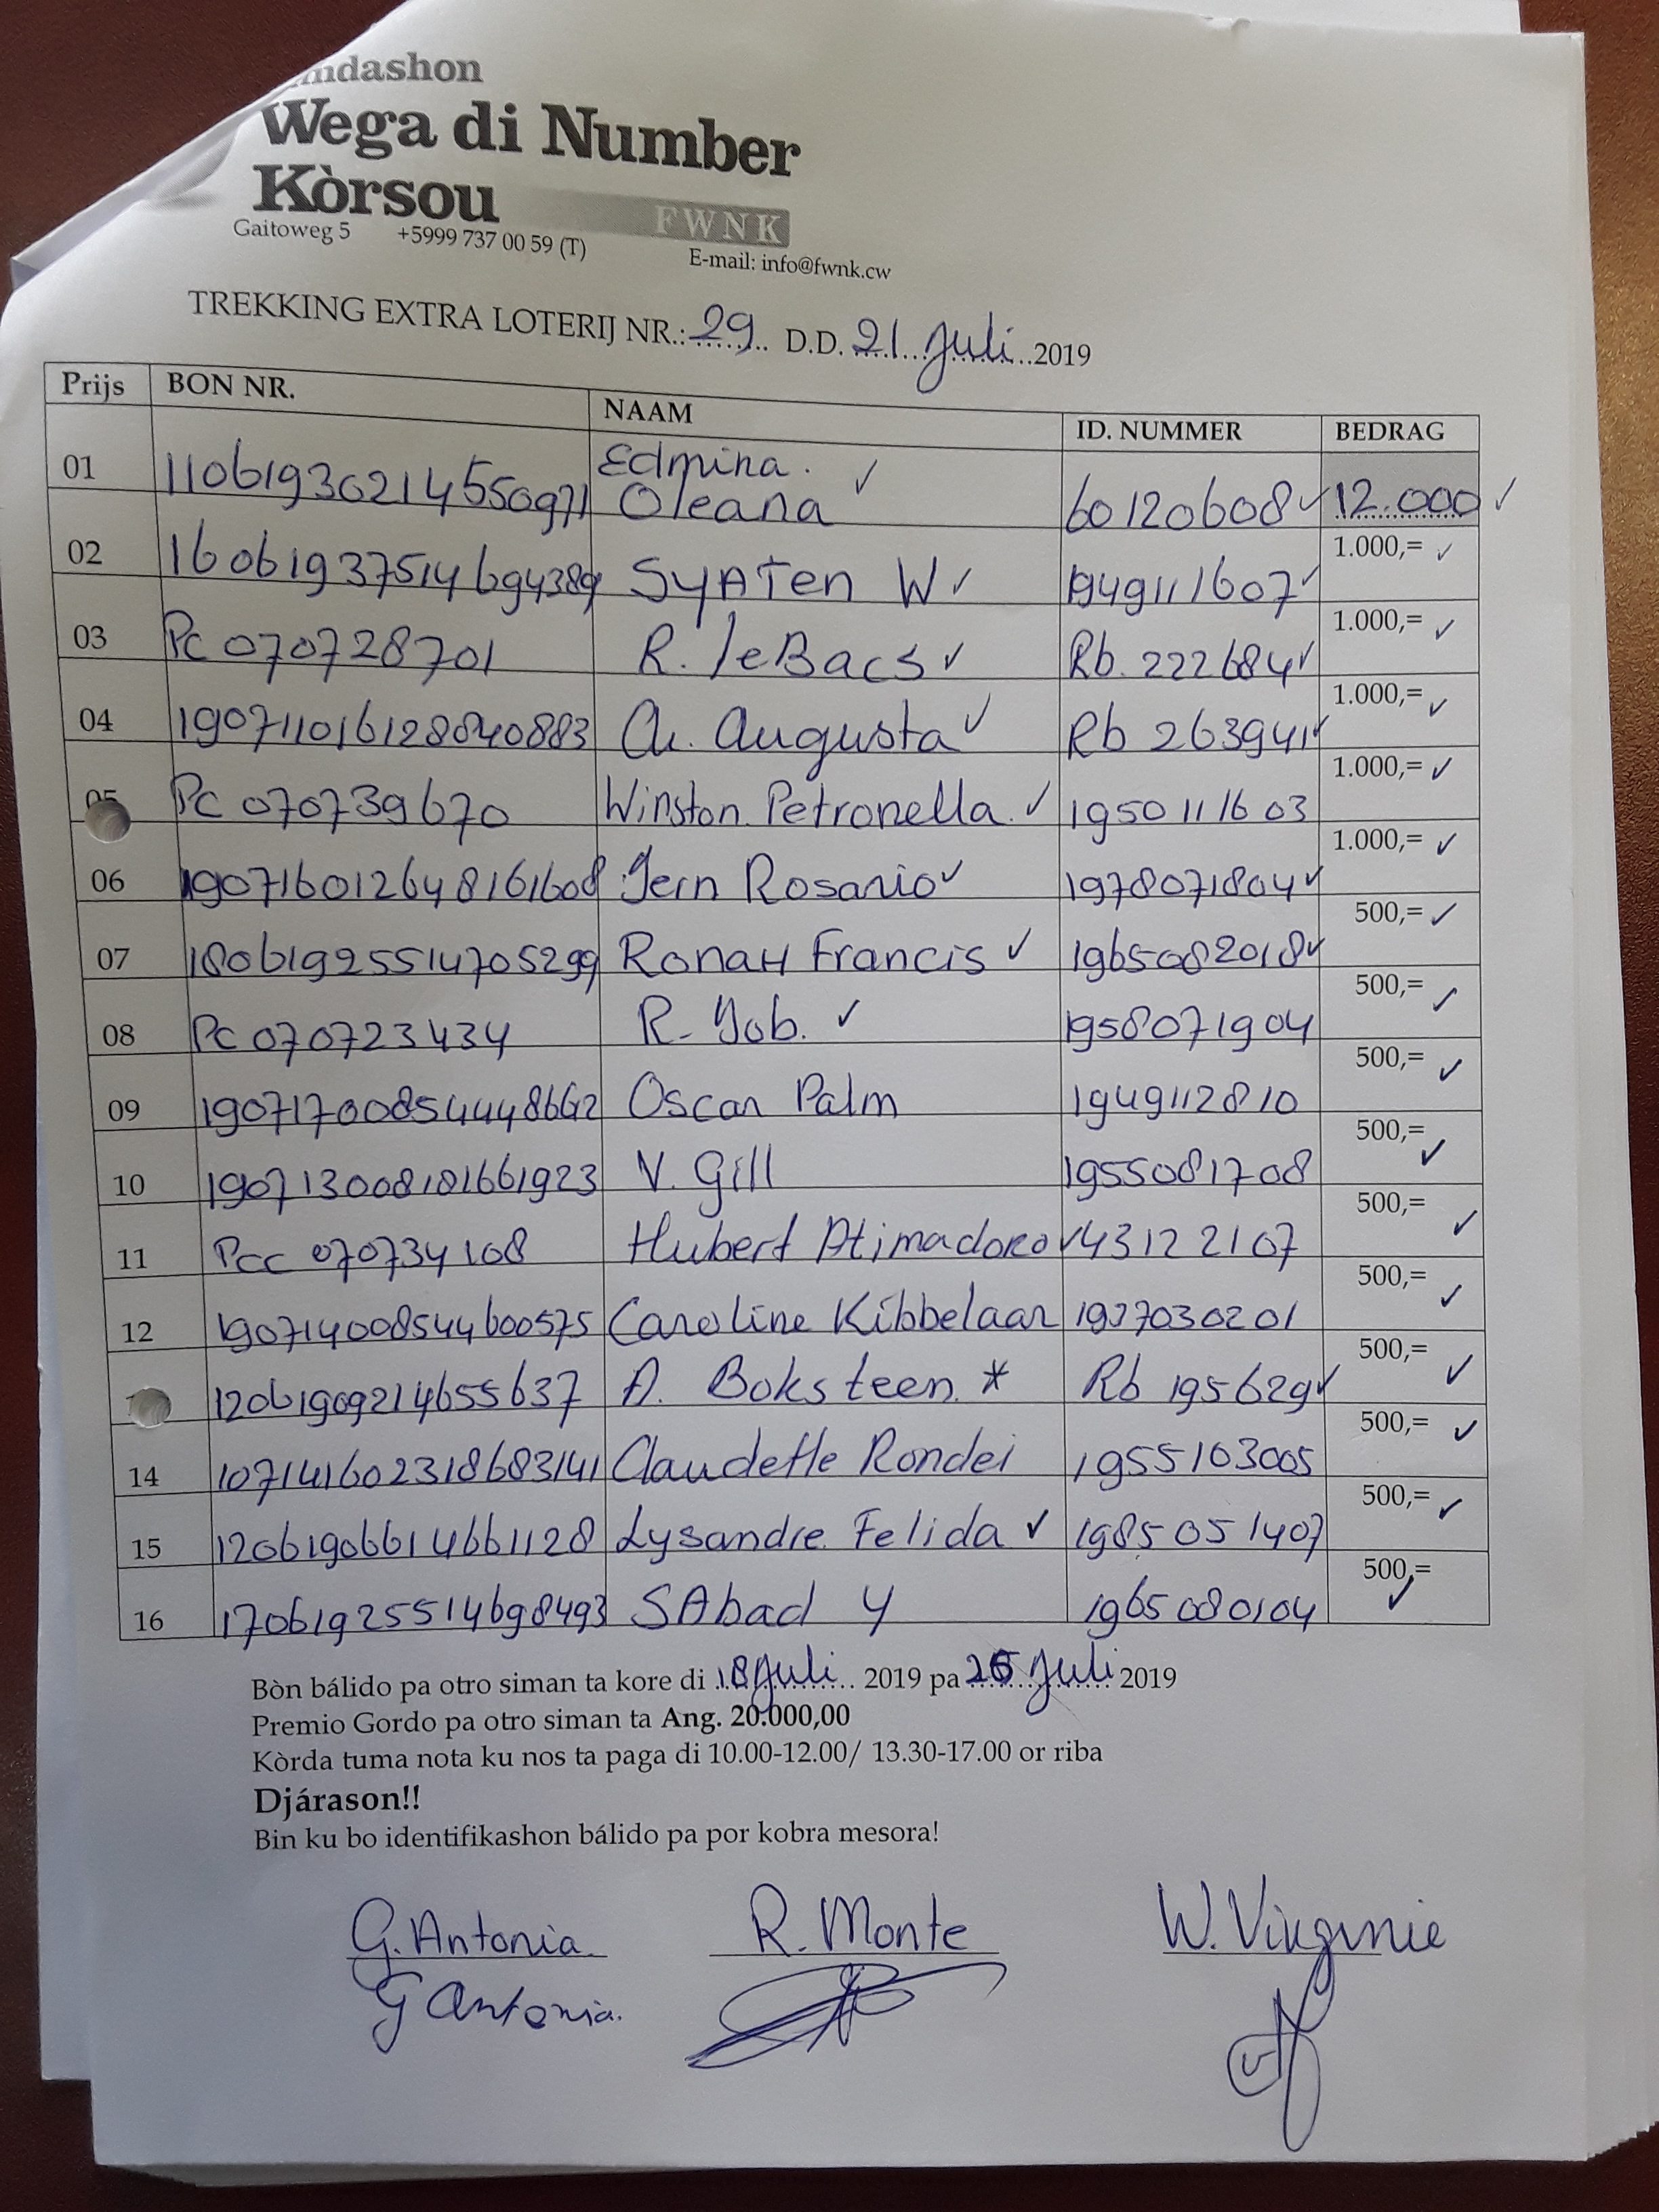 Wega di Number
Kòrsou
FWNK
Gaitoweg 5 +5999 737 00 59 (T)
E-mail: info@fwnk.cw
TREKKING EXTRA LOTERIJ NR.: 29 D.D. 21 Juli 2019
Prijs BON NR. NAAM ID. NUMMER BEDRAG
01 11061930214550971 Edmina. Oleana 60120608 12.000
02 16061937514694389 SyATen W 1949111607 1.000,=
03 Pc 070728701 R. leBacs Rb. 222684 1.000,=
04 1907110161128040883 Augusta Rb 263941 1.000,=
05 Pc 070739670 Winston Petronella. 1950111603 1.000,=
06 190716012648161608 Rosario 1978071804 1.000,=
07 18061925514705299 Francis 1965082018 500,=
08 Pc 070723434 R. Job. 1958071904 500,=
09 Oscar Palm 1949112810 500,=
10 190713008181661923 V. Gill 1955081708 500,=
11 Pcc 070734108 Hubert 43122107 500,=
12 190714008544600575 Caroline Kibbelaar 1937030201 500,=
12061909214655637 A. Boksteen * Rb 195629 500,=
14 107141602318683141 Claudette Rondei 1955103005 500,=
15 12061906614661128 Lysandre Felida 1985051407 500,=
16 17061925514698493 SAbad Y 1965080104 500,=
Bòn bálido pa otro siman ta kore di 18 Juli 2019 pa 25 Juli 2019
Premio Gordo pa otro siman ta Ang. 20.000,00
Kòrda tuma nota ku nos ta paga di 10.00-12.00/ 13.30-17.00 or riba
Djárason!!
Bin ku bo identifikashon bálido pa por kobra mesora!
G. Antonia R. Monte W. Virginie
G Antonia.